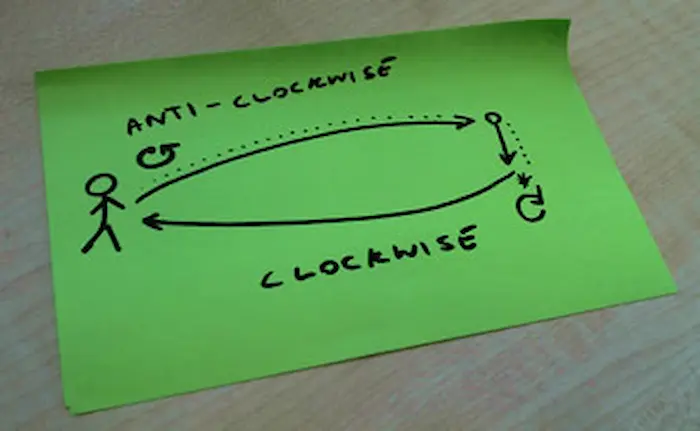 ANTI-CLOCKWISE
CLOCKWISE